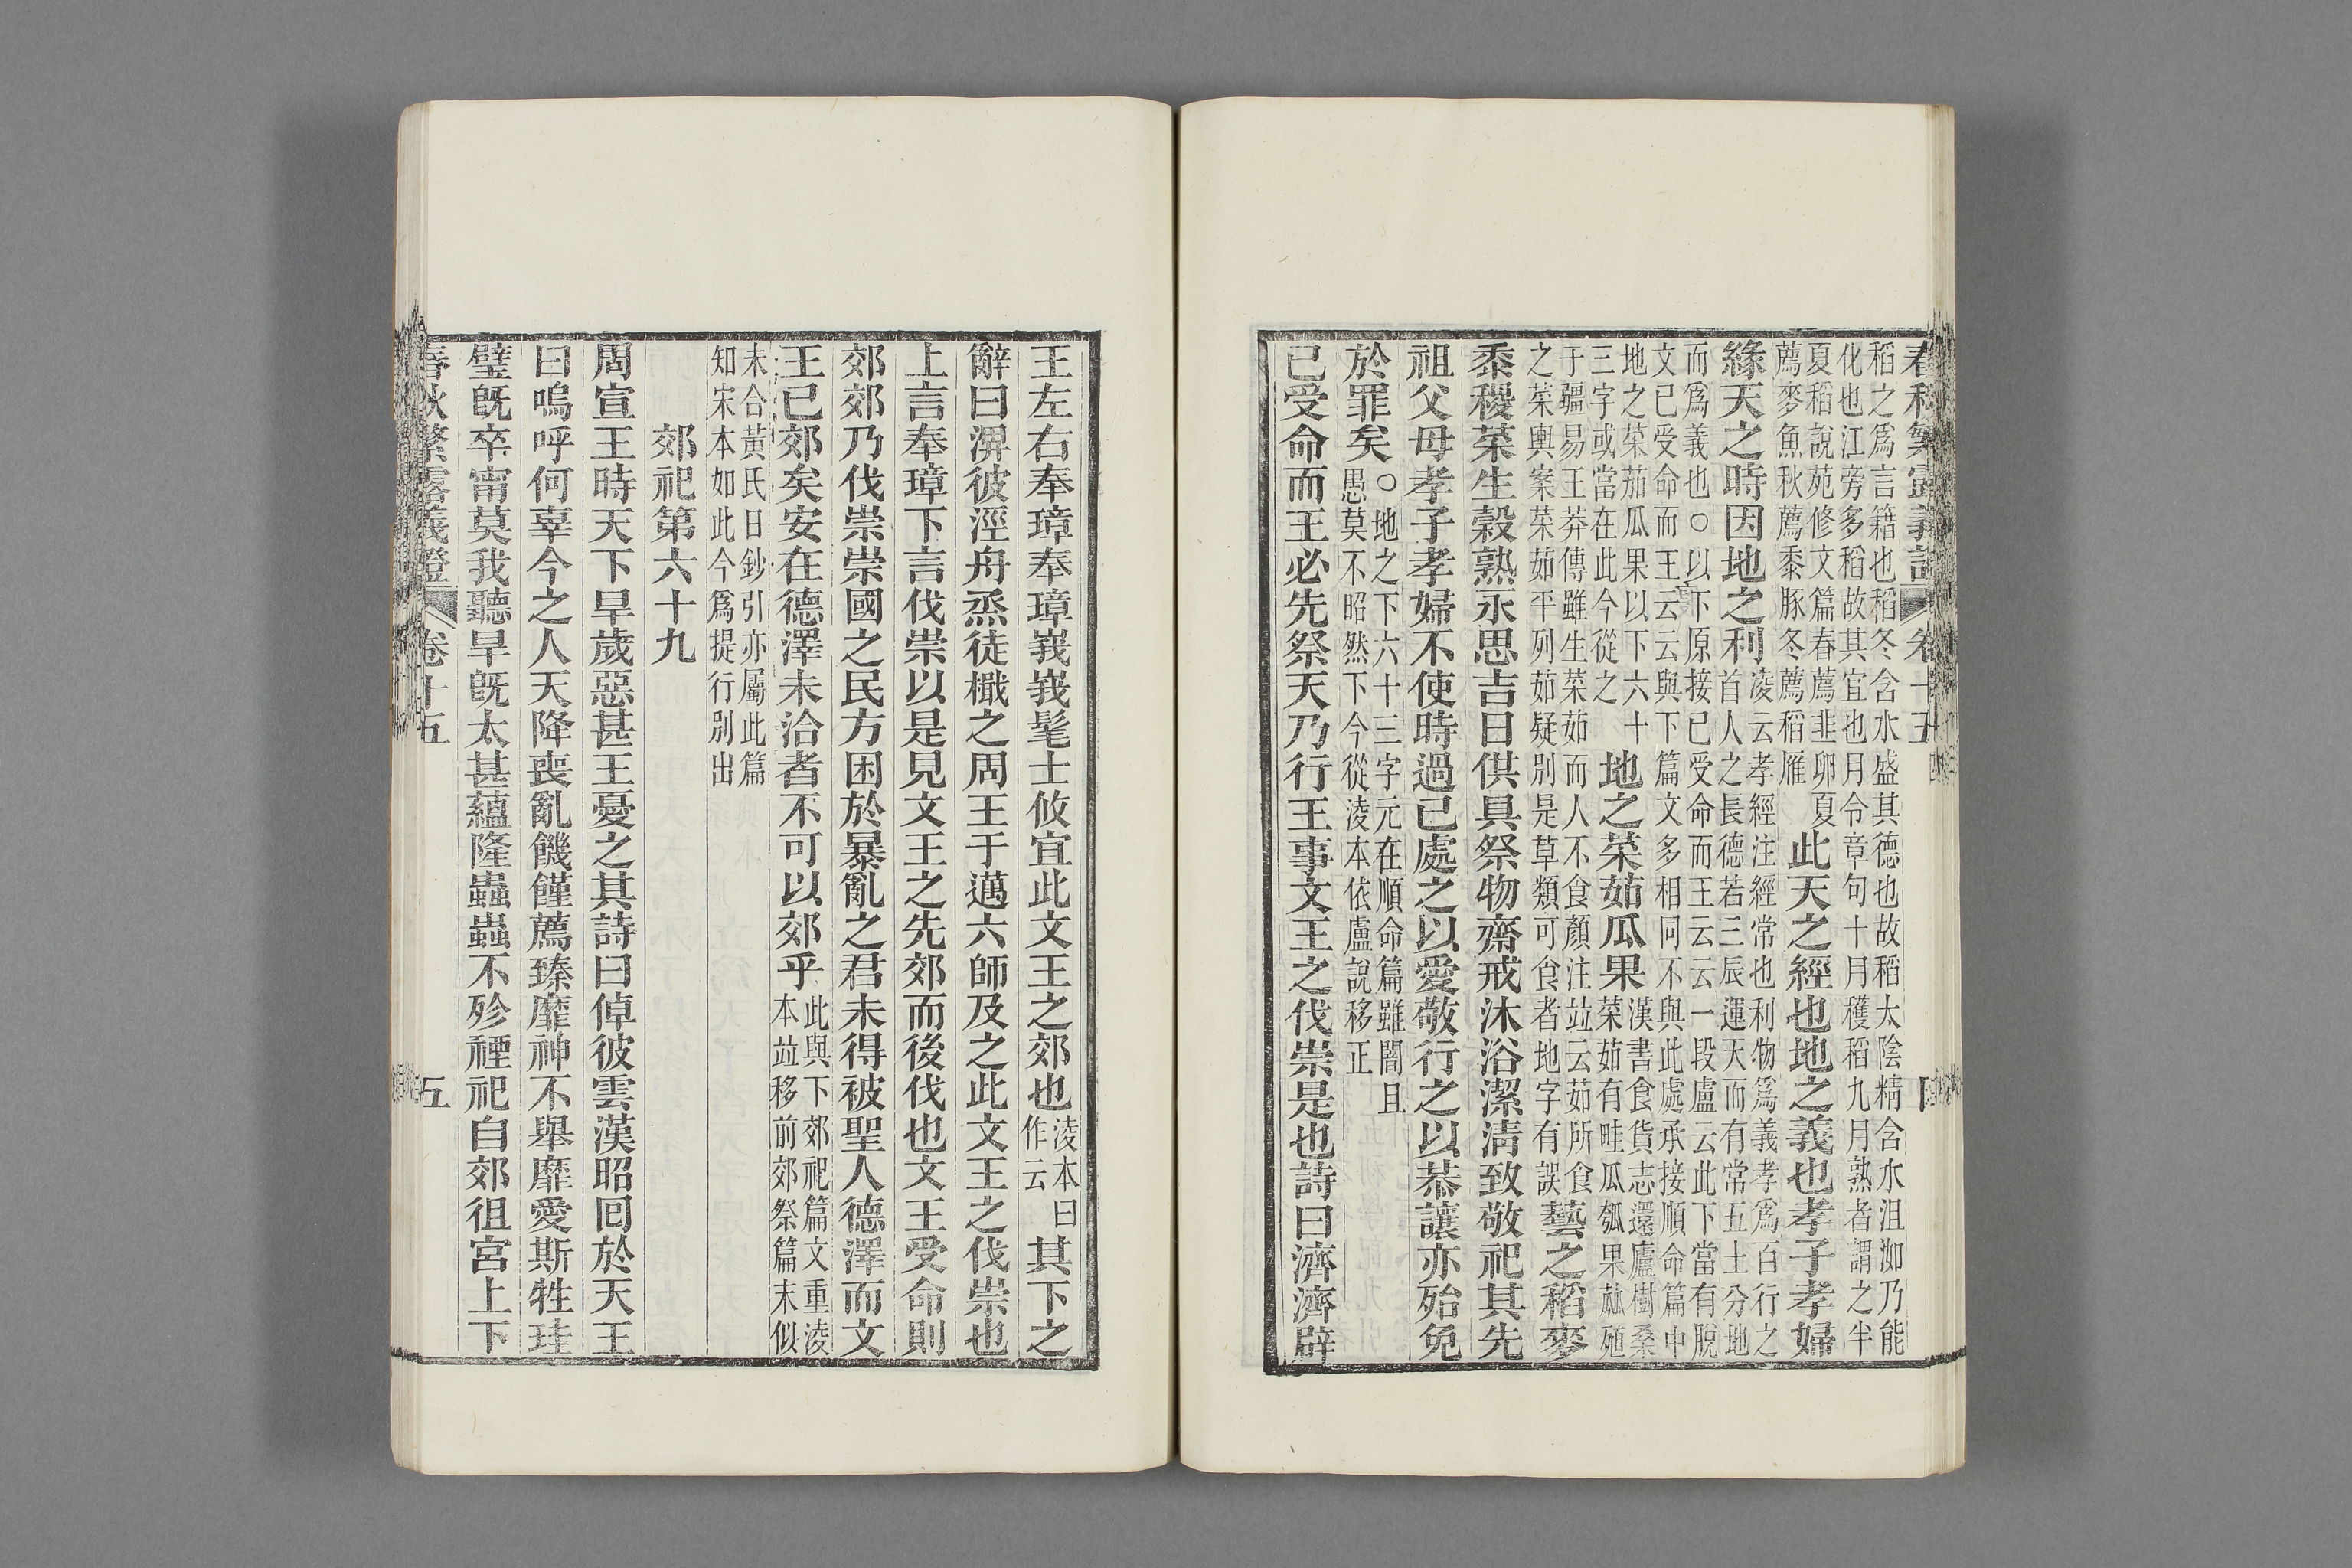 春秋繁露義證 卷十五 四
稻之爲言籍也稻冬含水盛其德也故稻太陰精含水沮洳乃能
化也江旁多稻故其宜也月令章句十月穫稻九月熟者謂之半
夏稻說苑修文篇春薦韭卵夏
薦麥魚秋薦黍豚冬薦稻雁
此天之經也地之義也孝子孝婦
緣天之時因地之利
淩云孝經注經常也利物爲義孝爲百行之
首人之長德若三辰運天而有常五土分地
而爲義也○以下原接已受命而王云云一段盧云此下當有脫
文已受命而王云云與下篇文多相同不與此處承接順命篇中
地之菜茄瓜果以下六十
三字或當在此今從之
地之菜茹瓜果
漢書食貨志還廬樹桑
菜茹有畦瓜瓠果蓏殖
于疆易王莽傳雖生菜茹而人不食顏注竝云茹所食
之菜輿案菜茹平列茹疑別是草類可食者地字有誤
藝之稻麥
黍稷菜生穀熟永思吉日供具祭物齋戒沐浴潔淸致敬祀其先
祖父母孝子孝婦不使時過已處之以愛敬行之以恭讓亦殆免
於罪矣
○地之下六十三字元在順命篇雖闇且
愚莫不昭然下今從淩本依盧說移正
已受命而王必先祭天乃行王事文王之伐崇是也詩曰濟濟辟
王左右奉璋奉璋峩峩髦士攸宜此文王之郊也
淩本曰
作云
其下之
辭曰淠彼涇舟烝徒檝之周王于邁六師及之此文王之伐崇也
上言奉璋下言伐崇以是見文王之先郊而後伐也文王受命則
郊郊乃伐崇崇國之民方困於暴亂之君未得被聖人德澤而文
王已郊矣安在德澤未洽者不可以郊乎
此與下郊祀篇文重淩
本竝移前郊祭篇末似
未合黃氏日鈔引亦屬此篇
知宋本如此今爲提行別出
郊祀第六十九
周宣王時天下旱歲惡甚王憂之其詩曰倬彼雲漢昭囘於天王
曰嗚呼何辜今之人天降喪亂饑饉薦臻靡神不舉靡愛斯牲珪
璧旣卒甯莫我聽旱旣太甚蘊隆蟲蟲不殄禋祀自郊徂宮上下
春秋繁露義證 卷十五 五